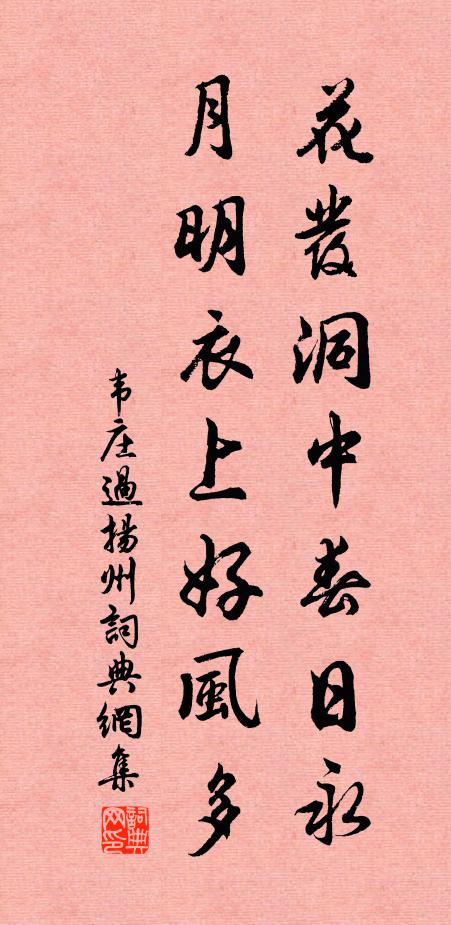 花發洞中春日永
月明衣上好風多
韦庄過揚州詞典網集
詞典网印